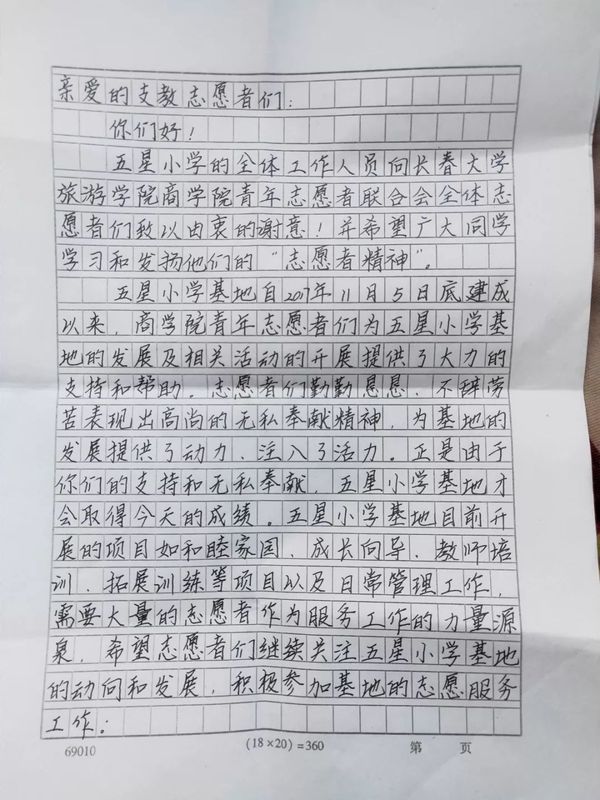 亲爱的支教志愿者们：
你们好！
五星小学的全体工作人员向长春大学
旅游学院商学院青年志愿者联合会全体志
愿者们致以由衷的谢意！并希望广大同学
学习和发扬他们的“志愿者精神”。
五星小学基地自2017年11月5日底建成
以来，商学院青年志愿者们为五星小学基
地的发展及相关活动的开展提供了大力的
支持和帮助。志愿者们勤勤恳恳、不辞劳
苦表现出高尚的无私奉献精神，为基地的
发展提供了动力、注入了活力。正是由于
你们的支持和无私奉献，五星小学基地才
会取得今天的成绩。五星小学基地目前开
展的项目如和睦家园、成长向导、教师培
训、拓展训练等项目以及日常管理工作，
需要大量的志愿者作为服务工作的力量源
泉，希望志愿者们继续关注五星小学基地
的动向和发展，积极参加基地的志愿服务
工作；
69010 (18×20)=360 第 页